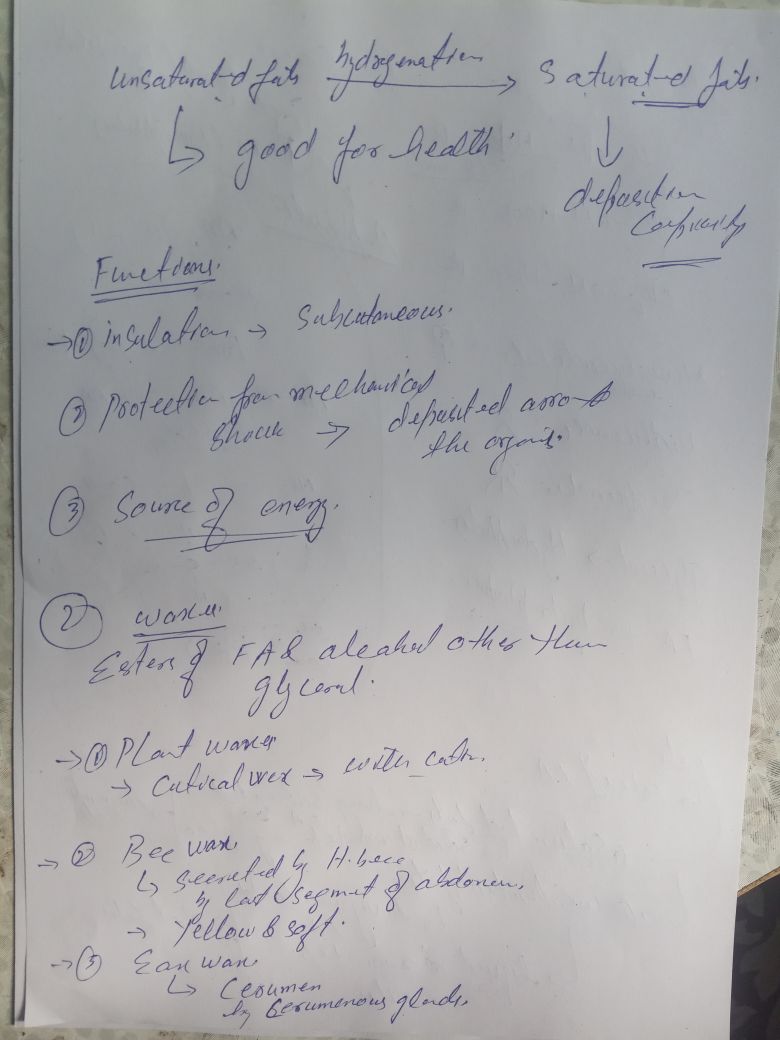 Unsaturated fats hydrogenation → Saturated fats.
↳ good for health.
↓
deposition
Capacity
Functions.
→ ① insulation → Subcutaneous.
② Protection from mechanical
shock → deposited
the organs.
③ Source of energy.
② waxes.
Esters of FA & alcohol other than
glycerol.
→ ① Plant waxes
→ Cutical wax → with
→ ② Bee wax.
↳ Secreted by H. bee
by last segment of abdomen.
→ Yellow & soft.
→ ③ Ear wax.
↳ Cerumen
by Cerumenous glands.